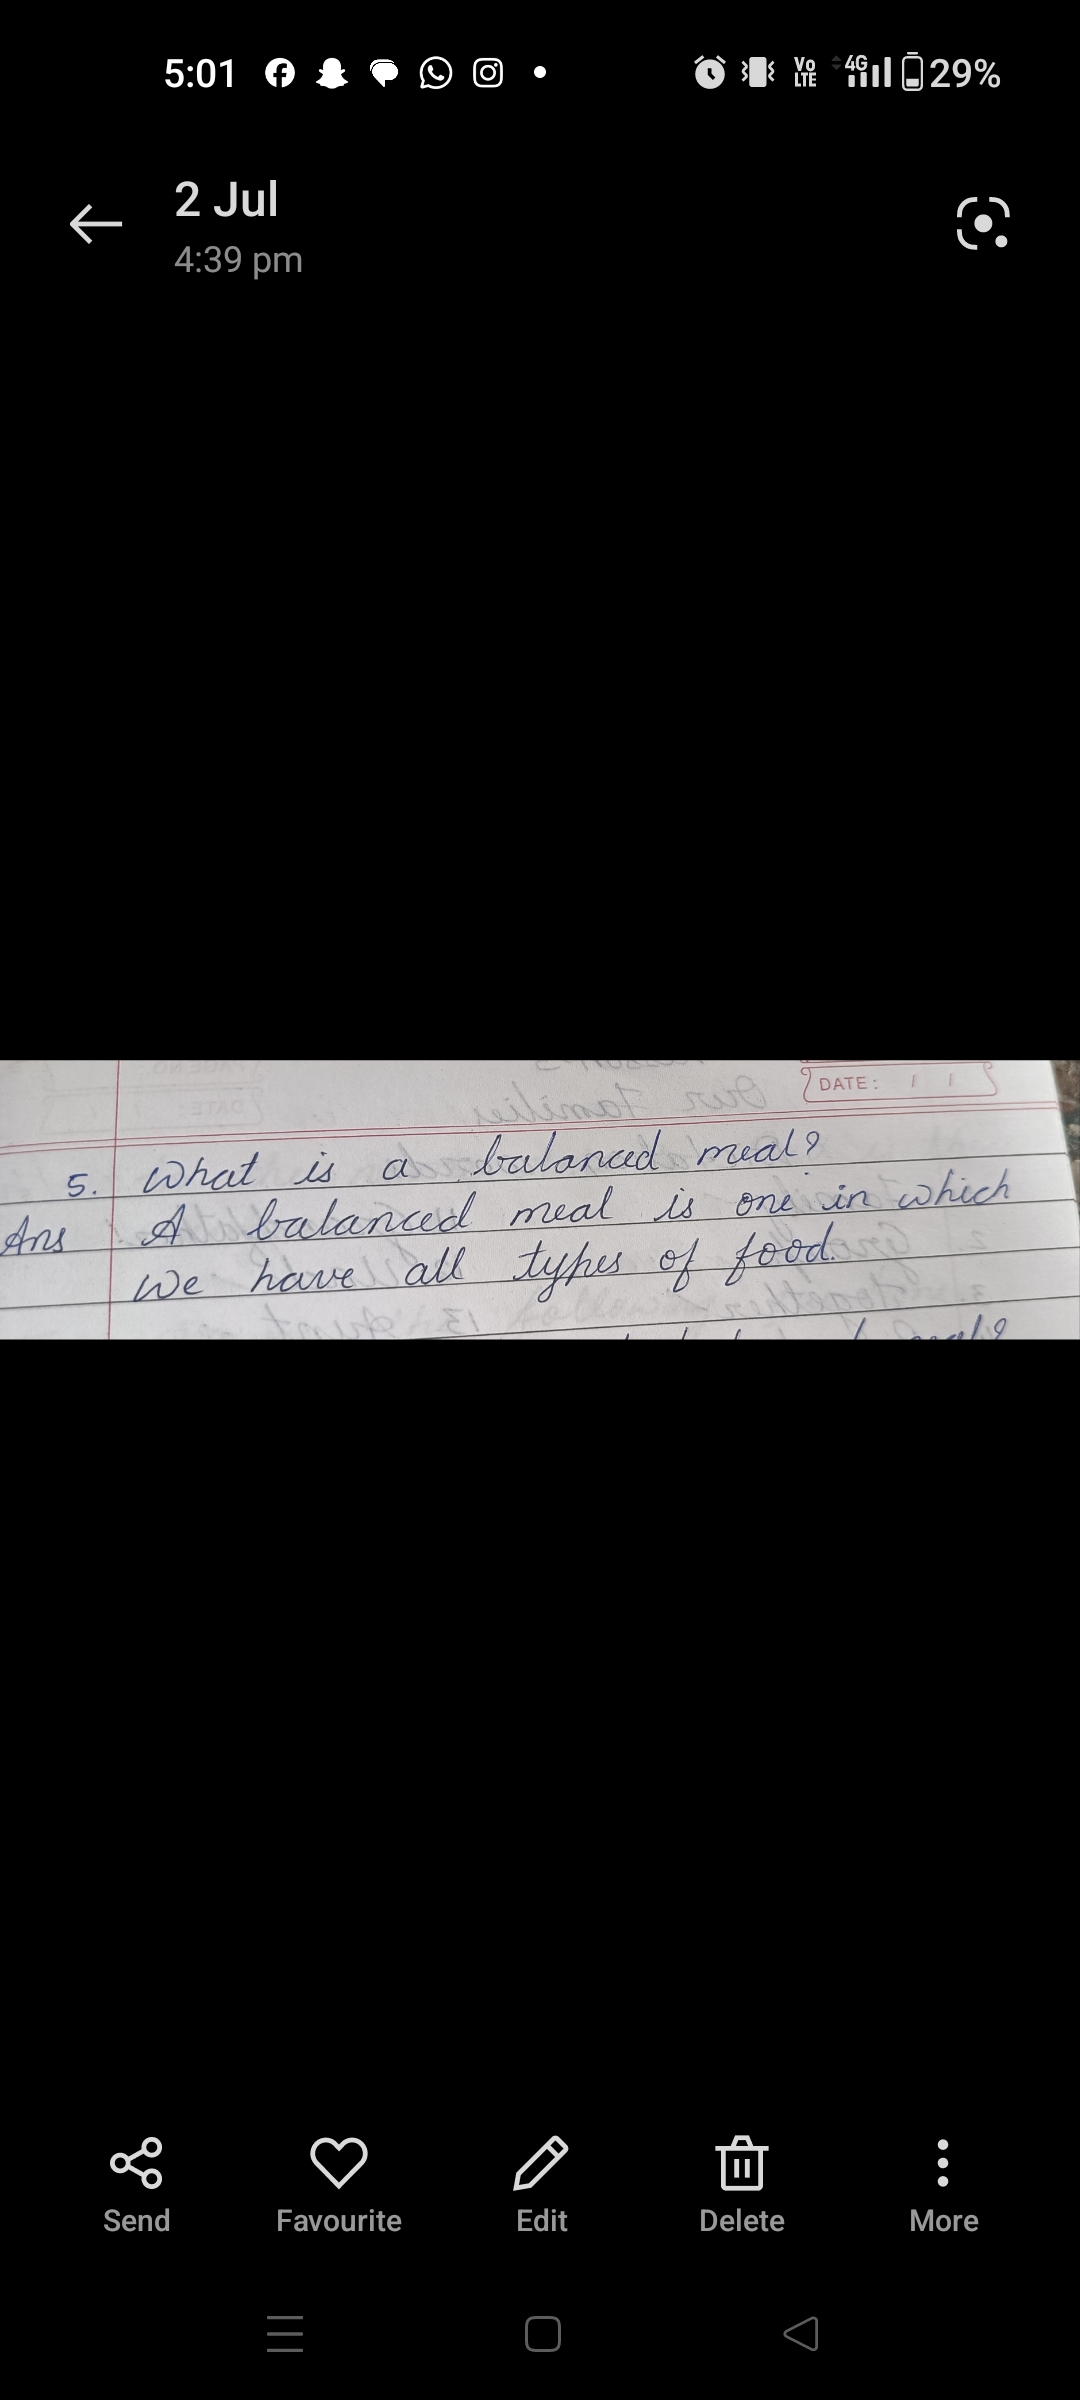 5:01 VoLTE 4G 29%
2 Jul
4:39 pm
DATE: / /
5. What is a balanced meal?
Ans A balanced meal is one in which
we have all types of food.
Send Favourite Edit Delete More